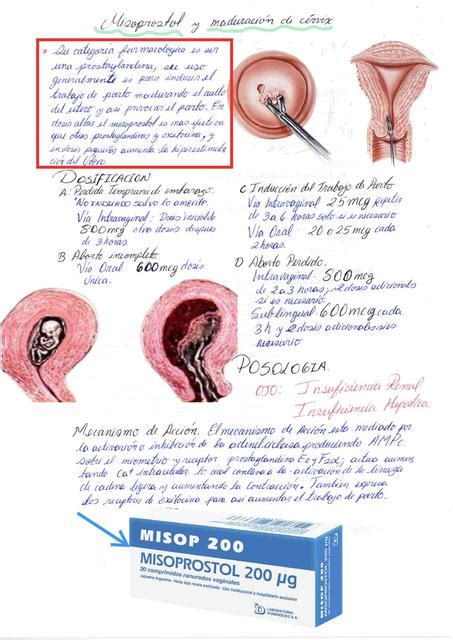 Misoprostol y maduración de cérvix
Su categoría farmacológica es ser
una prostaglandina, su uso
generalmente es para inducir el
trabajo de parto madurando el cuello
del útero y así provocar el parto. En
dosis altas el misoprostol es mas efectivo
que otras prostaglandinas y oxitocina, y
en dosis pequeñas aumenta la hiperestimula
ción del Utero.
DOSIFICACION
A: Perdida Temprana del embarazo.
No
salvo lo amerite.
Vía Intravaginal: Dosis inicial de
800 mcg otra dosis despues
de 3 horas.
B Aborto incompleto.
Vía Oral 600 mcg dosis
única.
C Inducción del Trabajo de Parto
Vía Intravaginal 25 mcg repetir
de 3 a 6 horas solo si es necesario
Vía Oral 20 o 25 mcg cada
2 horas.
D Aborto Perdido.
Intravaginal 800 mcg
de 2 a 3 horas, y 2 dosis adicionales
si es necesario.
Sublingual 600 mcg cada
3 h y 2 dosis adicionales si es
necesario
POSOLOGIA.
OJO: Insuficiencia Renal
Insuficiencia Hepatica.
Mecanismo de Acción. El mecanismo de Acción esta mediado por
la activación o inhibición de la adenilciclasa produciendo AMPc
sobre el miometrio y receptor prostaglandina E2 y F2α; actua aumen
tando Ca+ intracelular lo cual conlleva a la activación de la kinasa
de cadena ligera y aumentando la contracción. Tambien expresa
los receptores de oxitocina para asi aumentar el trabajo de parto.
MISOP 200
MISOPROSTOL 200 µg
20 comprimidos ranurados vaginales
Industria Argentina - Venta bajo receta archivada - Uso institucional y hospitalario exclusivo
LABORATORIO
DOMINGUEZ S.A.
MISOP 200
MISOPROSTOL 200 µg